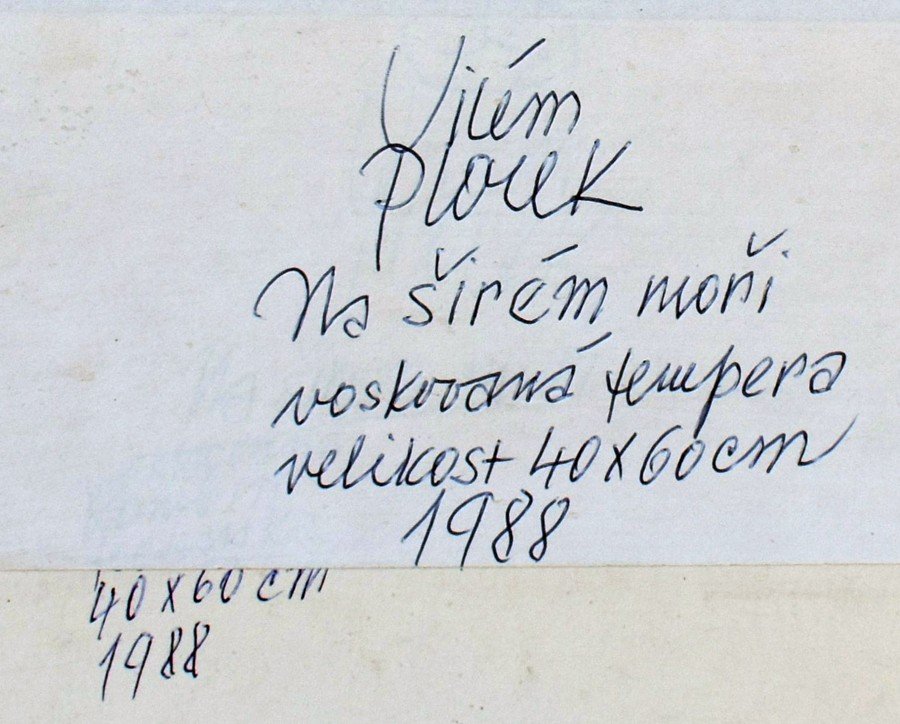 Vilém
Plocek
Na širém moři
voskovaná tempera
velikost 40x60cm
1988
40x60 cm
1988